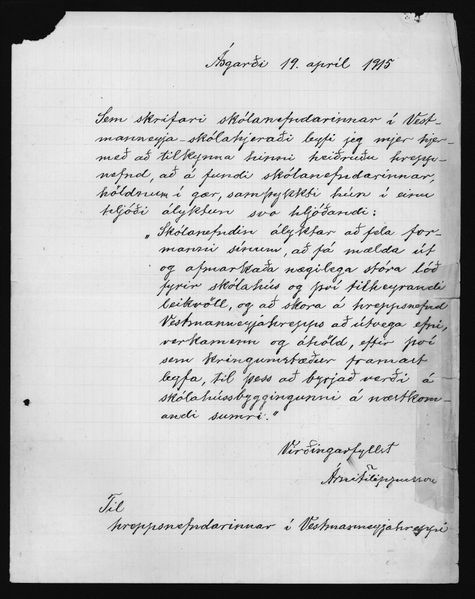 Ásgarði 19. apríl 1915
Sem skrifari skólanefndarinnar í Vest-
manneyja-skólahjeraði leyfi jeg mjer hjer-
með að tilkynna hinni heiðruðu hrepps-
nefnd, að á fundi skólanefndarinnar,
höldnum í gær, samþykkti hún í einu
hljóði ályktun svo hljóðandi:
"Skólanefndin ályktar að fela for-
manni sínum, að fá mælda út
og afmarkaða nægilega stóra lóð
fyrir skólahús og því tilheyrandi
leikvöll, og að skora á hreppsnefnd
Vestmanneyjahrepps að útvega efni,
verkamenn og áhöld, eftir því
sem kringumstæður framast
leyfa, til þess að byrjað verði á
skólahússbyggingunni á næstkom-
andi sumri."
Virðingarfyllst
Árni Filippusson
Til
hreppsnefndarinnar í Vestmanneyjahreppi